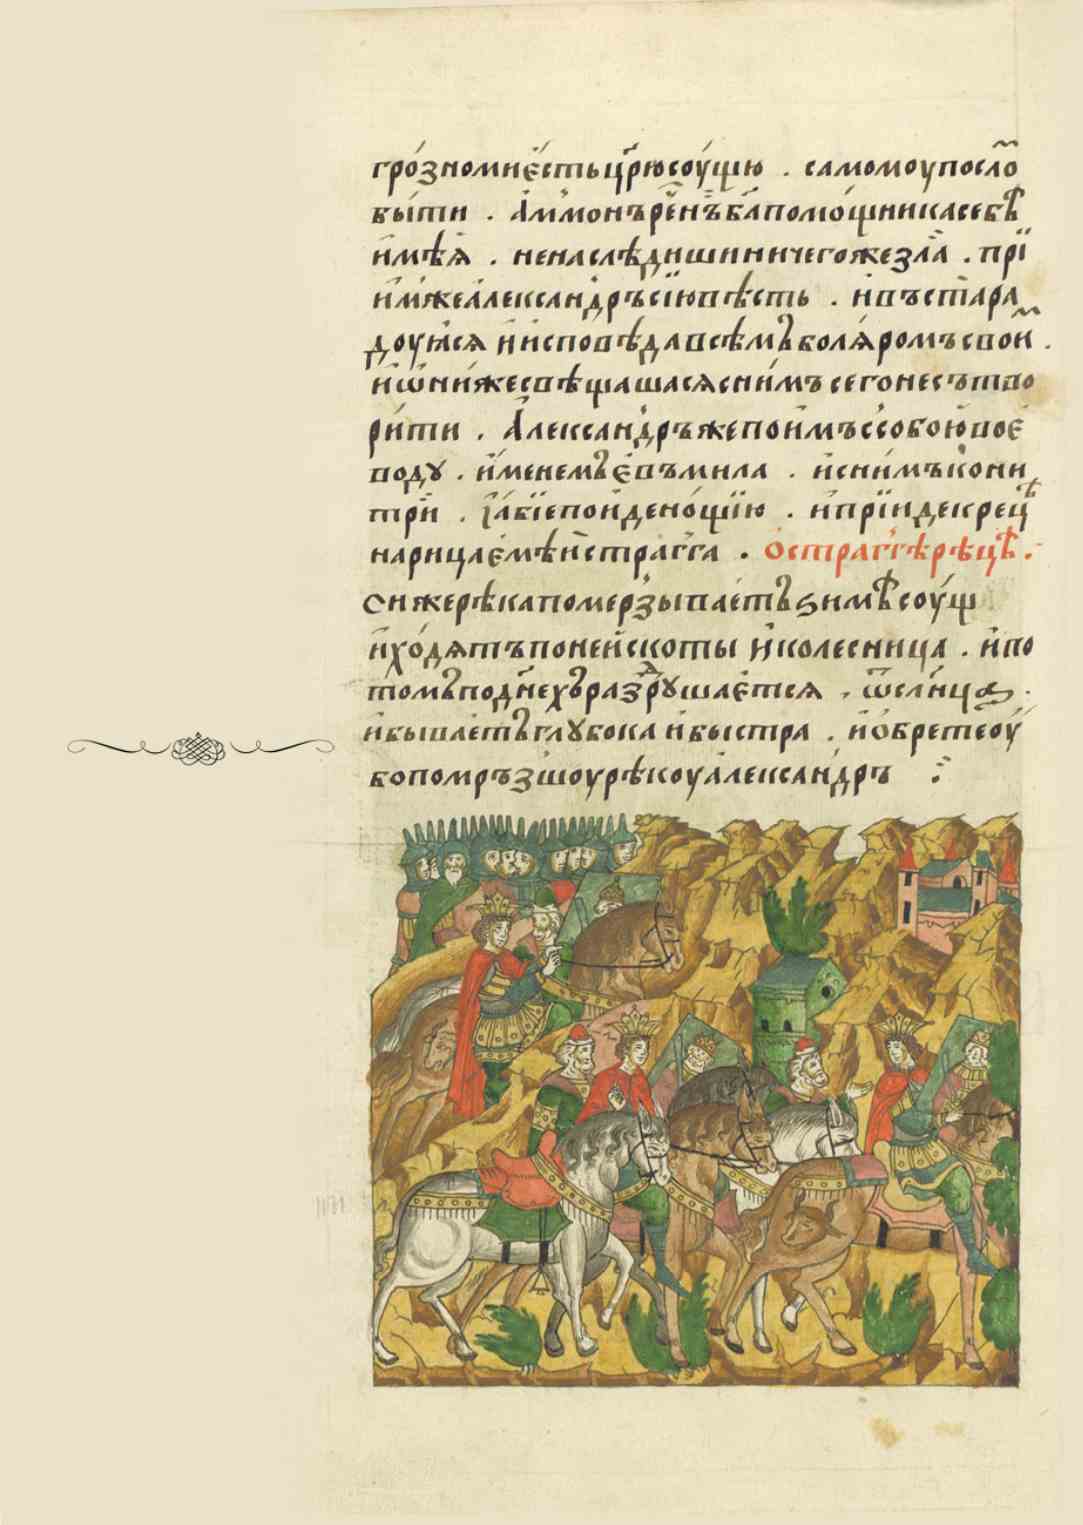 гро́зномиє́стьцр҃юсоу́щю . самомоупосло᷇
бы́ти . А́ммонъреⷱ҇нъбл҃апомо́щникасебѣ̀
и҆мѣ́ѧ . ненаслѣ́дишиничегожезла̀ . прїи̑
и҆мⸯжеа҆леѯа́ндръсїювѣ́сть . и҆въстара
доуѧ́сѧ и҆исповѣ́давсѣ́мъболѧ́ромъсвои᷇ .
и҆ѡни́жесвѣщашасѧсни́мъсегонесътво
ри́ти . А҆леѯа́ндръжепои́мъссобо́ювоє
воду . и҆́менемъє҆въмила . и҆сни́мъко́ни
три̏ . и҆а́бїепои́дено́щїю . и҆прїи́декрецѣ̀
нарица́ємѣи҆стра́гга . Ѡстраггѣрѣцѣ̀ .
Сиⸯжерѣ́капомерⸯзыва́етъѕимѣ̀соу́щ
и҆хо́дѧтъпоне́искоты и҆колесница . и҆по
то́мъподне́хъразⸯрꙋша́єтсѧ , ѿсл҃нца .
и҆быва́етъглꙋбока и҆быстра . и҆ѡбретеоу҆
бопомръзшоурѣкоуа҆леѯа́ндръ